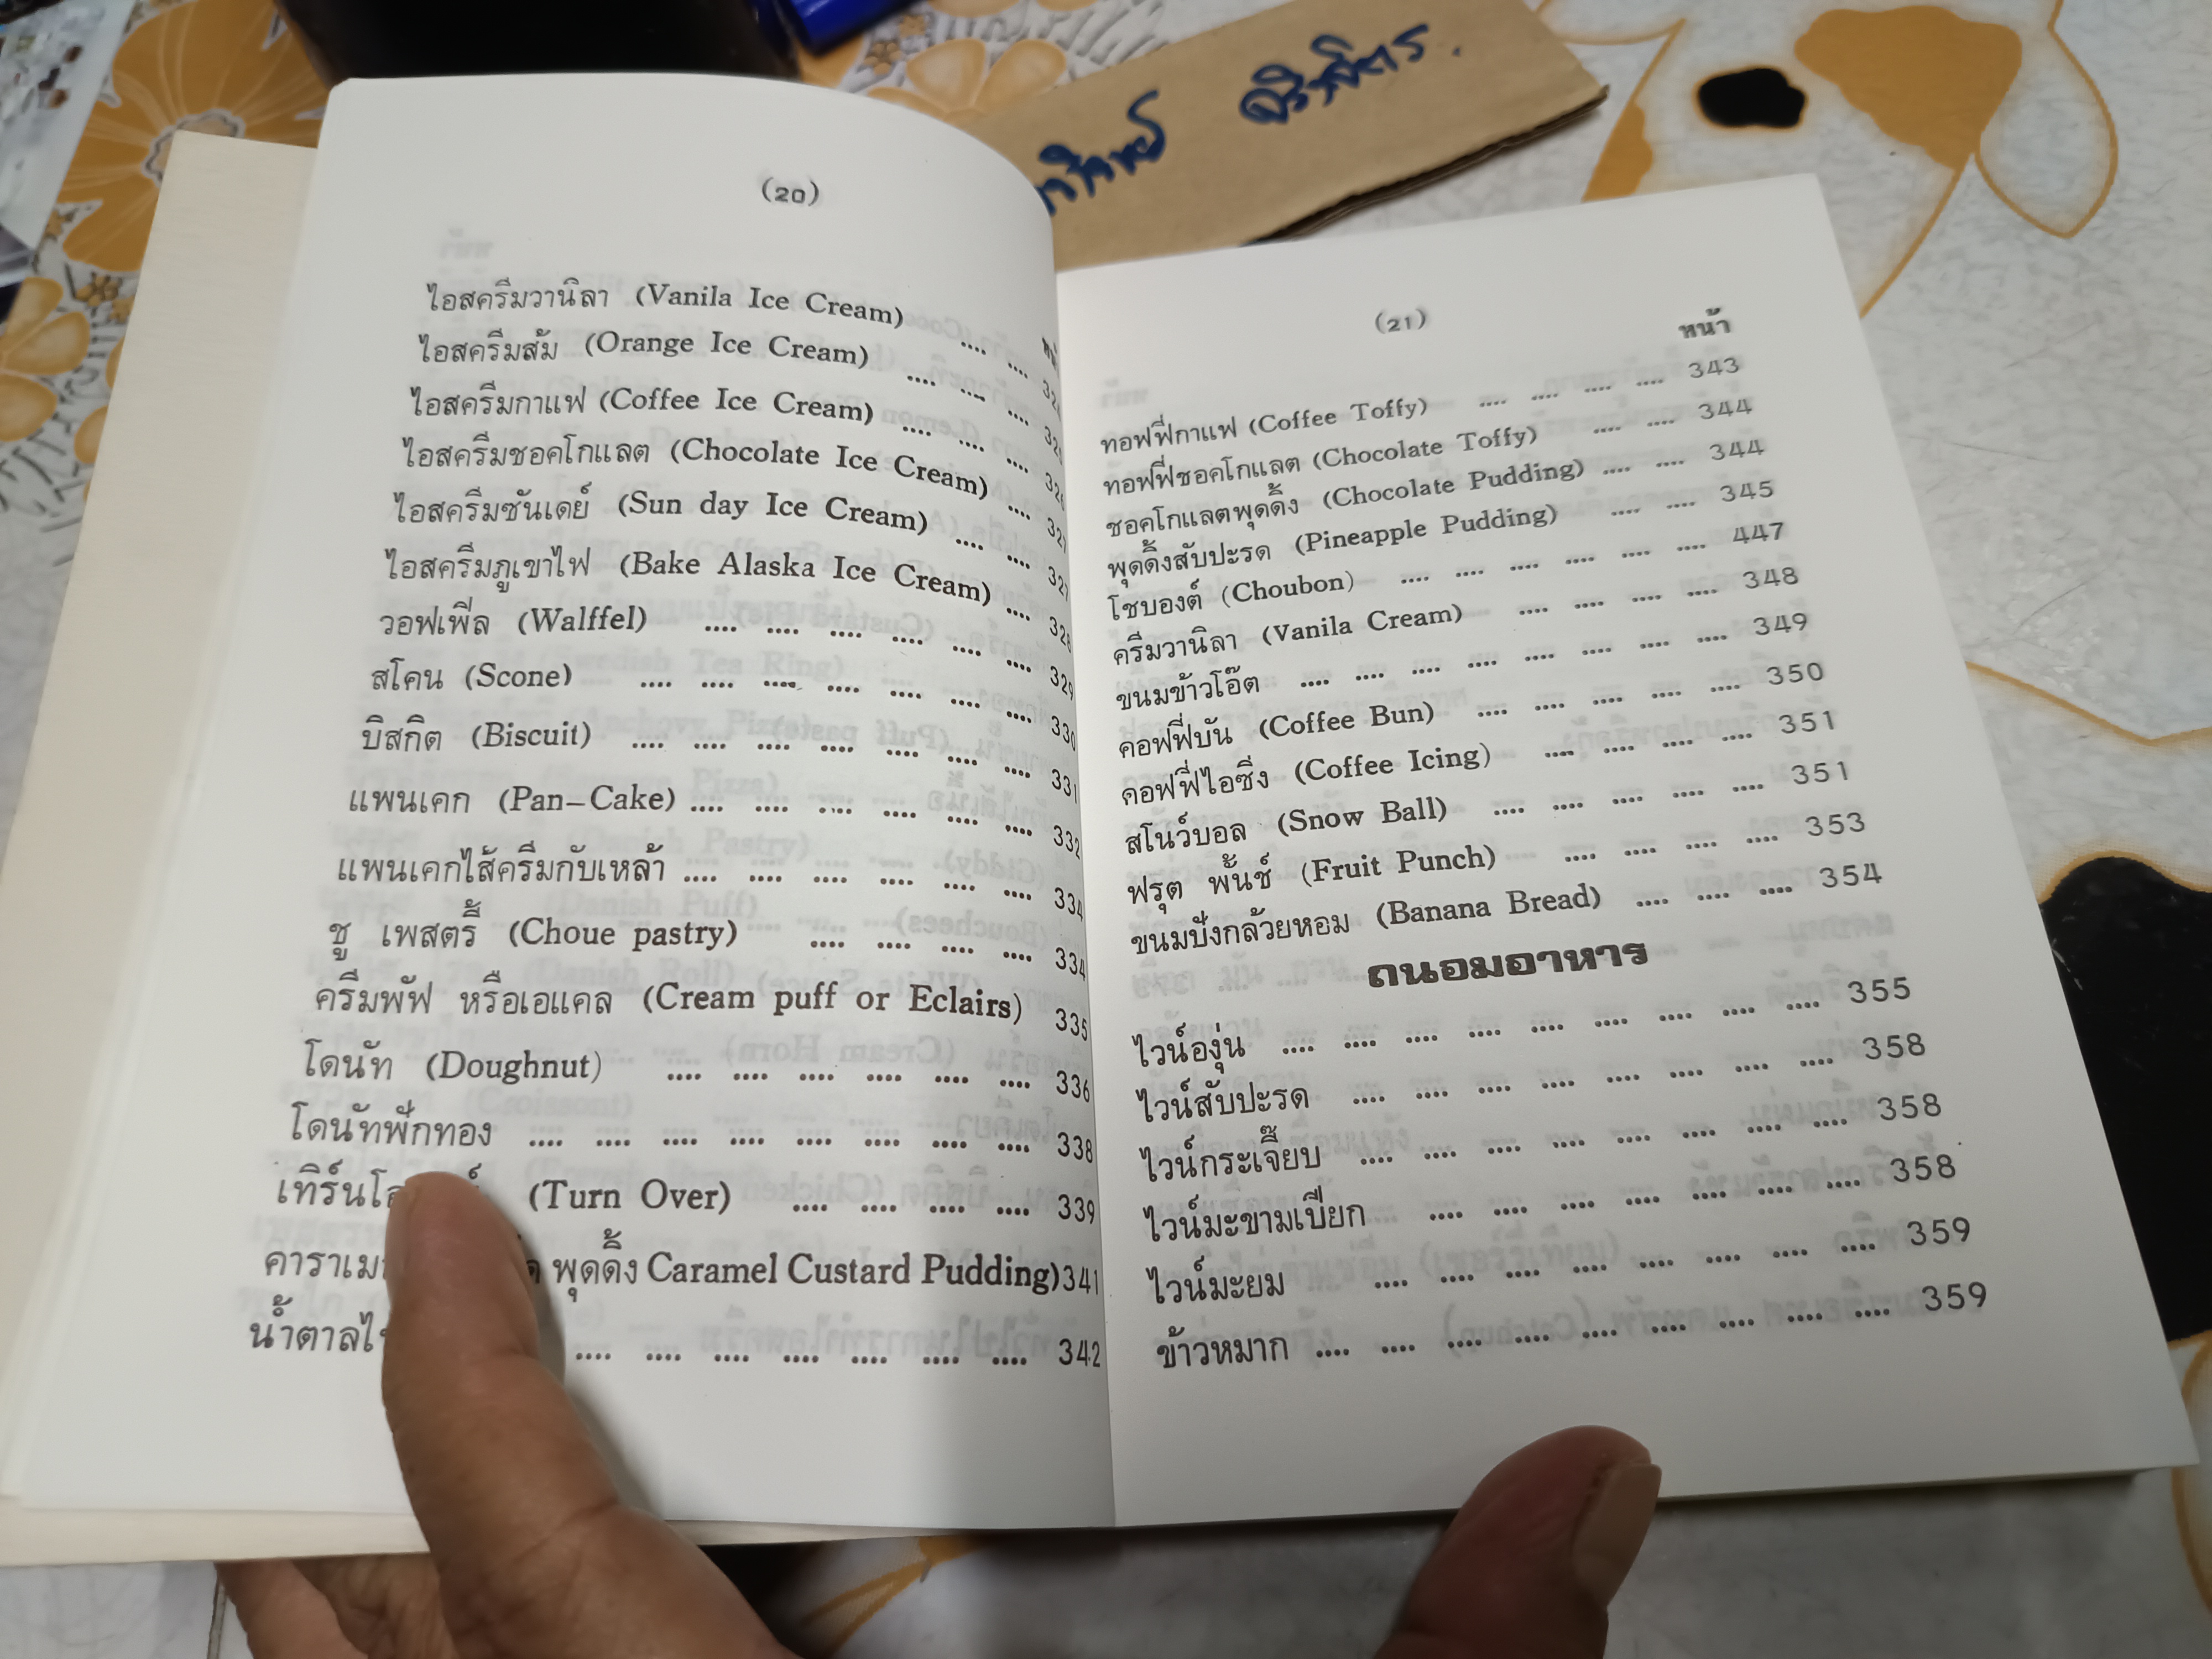 (20)
ไอสครีมวานิลา (Vanila Ice Cream) .... ....
ไอสครีมส้ม (Orange Ice Cream) .... .... ....
ไอสครีมกาแฟ (Coffee Ice Cream) .... .... ....
ไอสครีมชอคโกแลต (Chocolate Ice Cream) .... 327
ไอสครีมซันเดย์ (Sun day Ice Cream) .... .... 327
ไอสครีมภูเขาไฟ (Bake Alaska Ice Cream) .... 328
วอฟเฟิ่ล (Walffel) .... .... .... .... .... .... 329
สโคน (Scone) .... .... .... .... .... .... .... 330
บิสกิต (Biscuit) .... .... .... .... .... .... .... 331
แพนเคก (Pan-Cake) .... .... .... .... .... .... 332
แพนเคกไส้ครีมกับเหล้า .... .... .... .... .... .... 334
ชู เพสตรี้ (Choue pastry) .... .... .... .... 334
ครีมพัฟ หรือเอแคล (Cream puff or Eclairs) 335
โดนัท (Doughnut) .... .... .... .... .... .... 336
โดนัทฟักทอง .... .... .... .... .... .... .... .... 338
(Turn Over) .... .... .... .... 339
พุดดิ้ง Caramel Custard Pudding) 341
.... .... .... .... .... .... .... 342
(21)
หน้า
ทอฟฟี่กาแฟ (Coffee Toffy) .... .... .... .... 343
ทอฟฟี่ชอคโกแลต (Chocolate Toffy) .... .... 344
ชอคโกแลตพุดดิ้ง (Chocolate Pudding) .... .... 344
พุดดิ้งสับปะรด (Pineapple Pudding) .... .... 345
โชบองต์ (Choubon) .... .... .... .... .... .... 447
ครีมวานิลา (Vanila Cream) .... .... .... .... 348
ขนมข้าวโอ๊ต .... .... .... .... .... .... .... .... 349
คอฟฟี่บัน (Coffee Bun) .... .... .... .... .... 350
คอฟฟี่ไอซิ่ง (Coffee Icing) .... .... .... .... 351
สโนว์บอล (Snow Ball) .... .... .... .... .... 351
ฟรุต พั้นช์ (Fruit Punch) .... .... .... .... 353
ขนมปังกล้วยหอม (Banana Bread) .... .... .... 354
ถนอมอาหาร
ไวน์องุ่น .... .... .... .... .... .... .... .... .... 355
ไวน์สับปะรด .... .... .... .... .... .... .... .... 358
ไวน์กระเจี๊ยบ .... .... .... .... .... .... .... .... 358
ไวน์มะขามเปียก .... .... .... .... .... .... .... 358
ไวน์มะยม .... .... .... .... .... .... .... .... 359
ข้าวหมาก .... .... .... .... .... .... .... .... .... 359